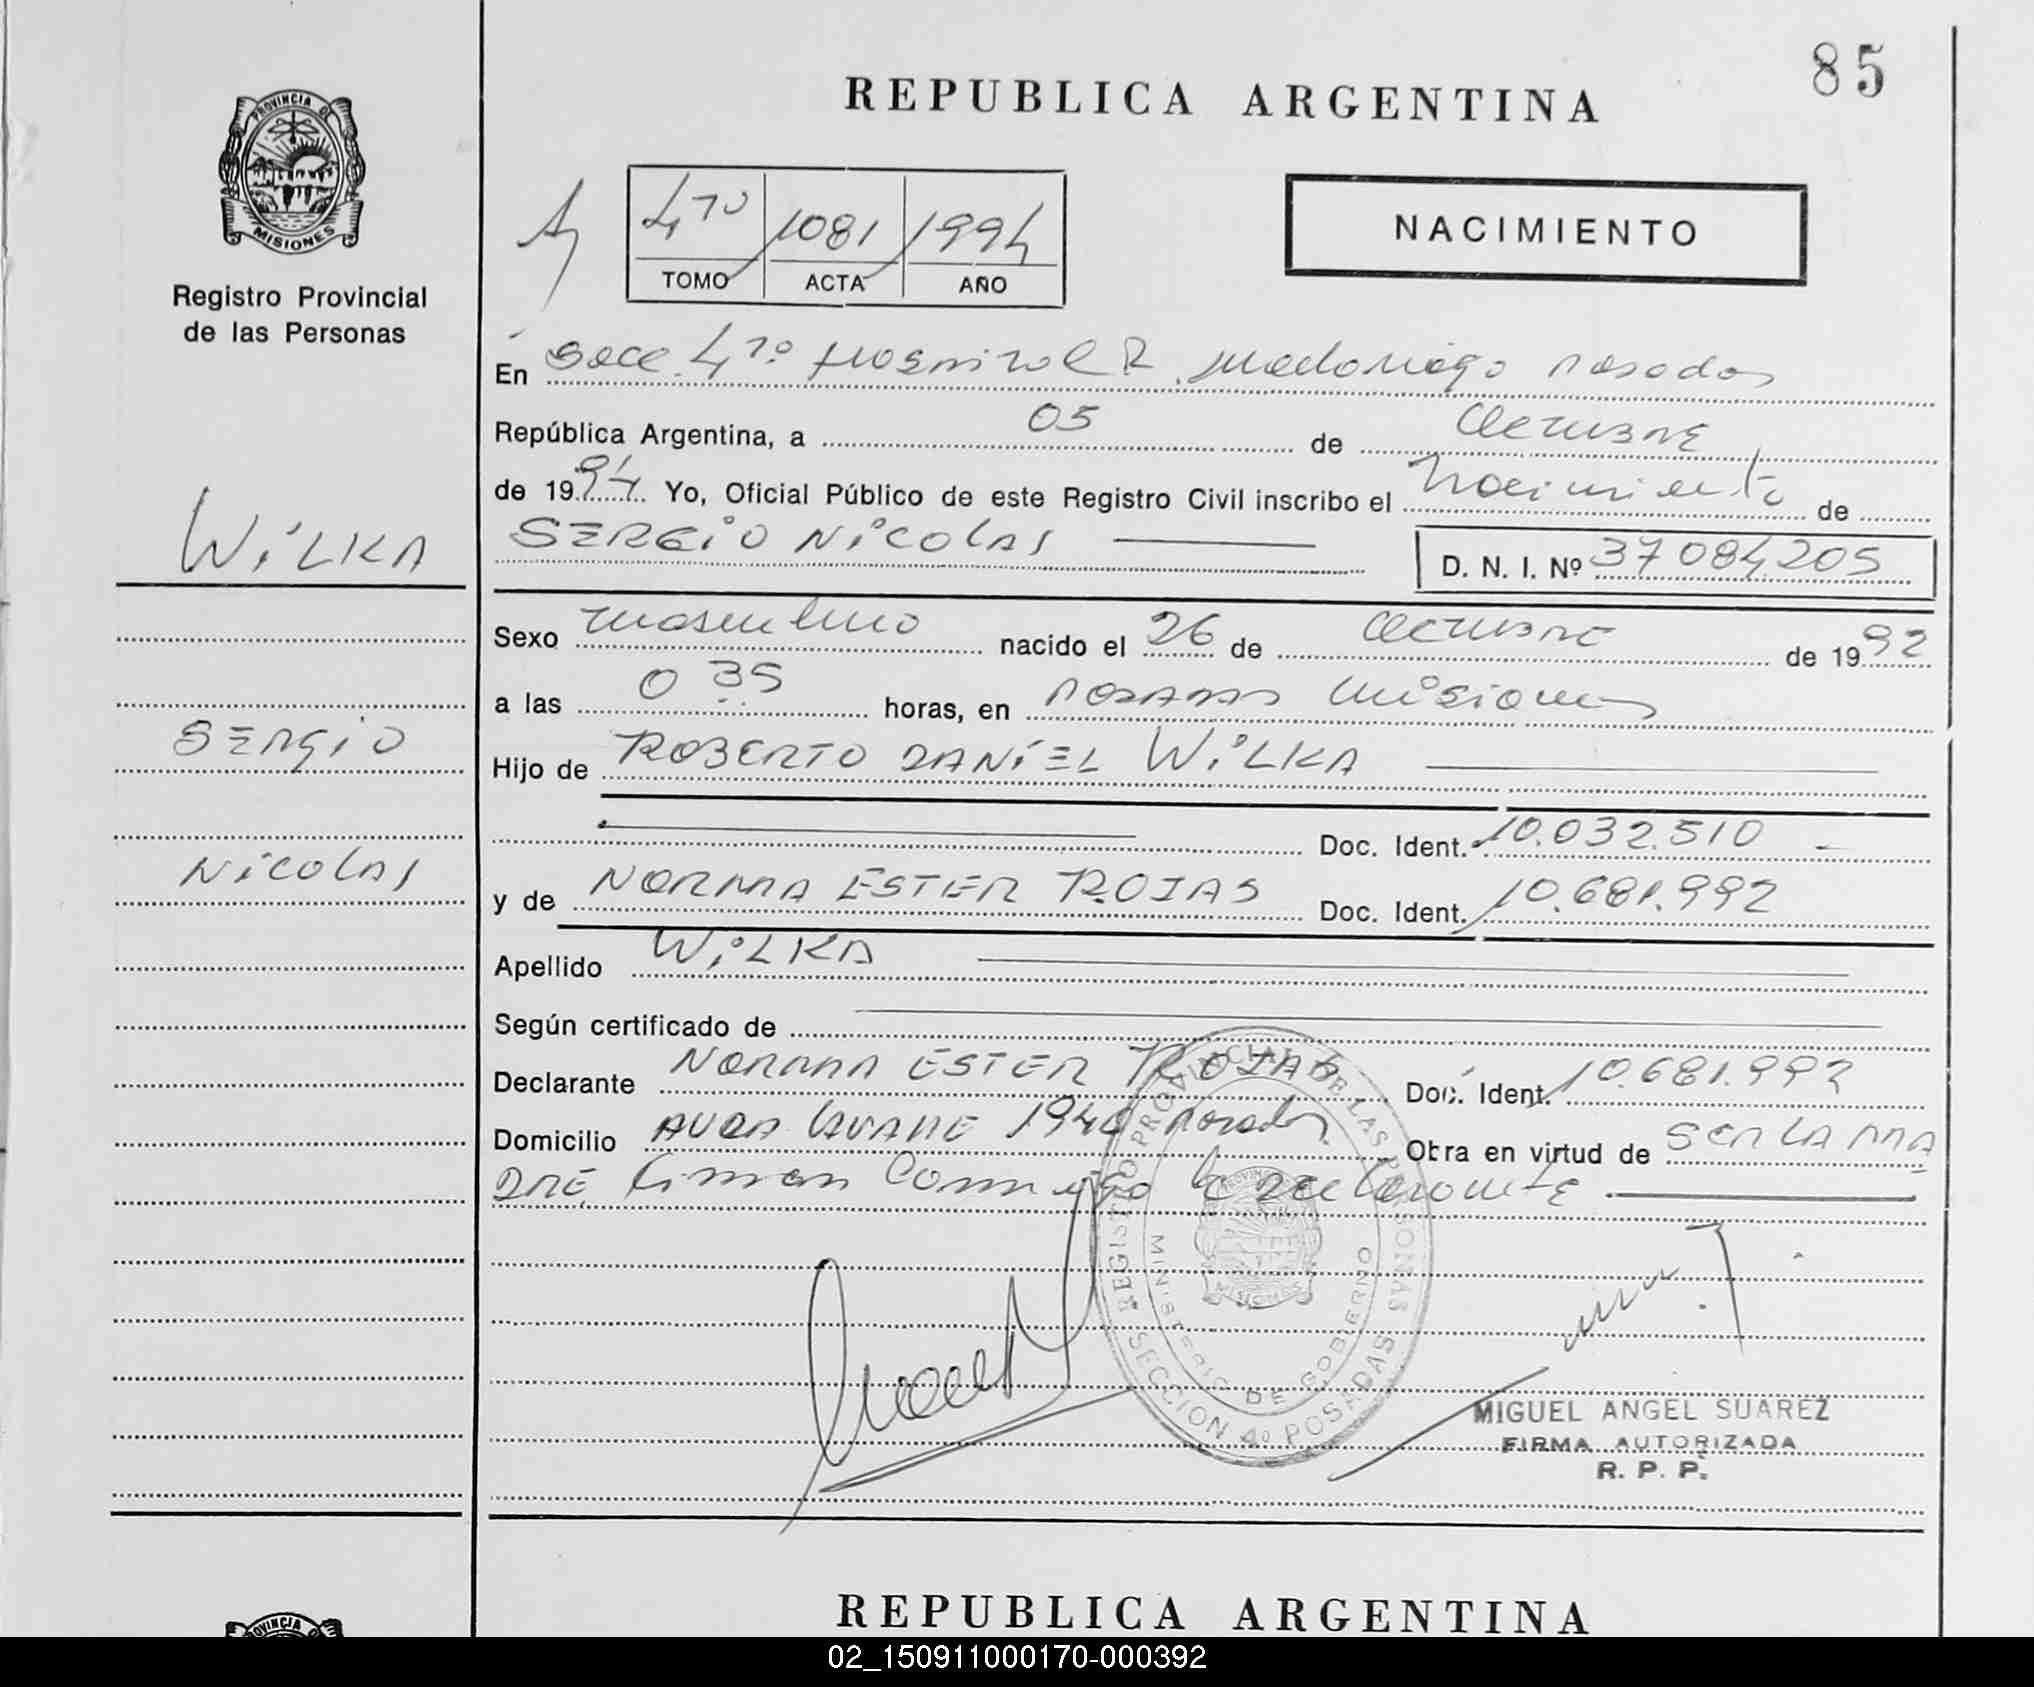 85
REPUBLICA ARGENTINA
PROVINCIA DE
MISIONES
Registro Provincial
de las Personas
4to 1081 1994
TOMO ACTA AÑO
NACIMIENTO
En Secc. 4to Hospital R. Madariaga Posadas
República Argentina, a 05 de Octubre
de 1994. Yo, Oficial Público de este Registro Civil inscribo el Nacimiento de
SERGIO NICOLAS
D. N. I. Nº 37084205
WILKA
Sexo masculino nacido el 26 de Octubre de 1992
a las 0 35 horas, en Posadas Misiones
SERGIO
Hijo de ROBERTO DANIEL WILKA
Doc. Ident. 10.032.510
NICOLAS
y de NORMA ESTER ROJAS Doc. Ident. 10.681.992
Apellido WILKA
Según certificado de
Declarante NORMA ESTER ROJAS Doc. Ident. 10.681.992
Domicilio AVDA 1940 Posadas Obra en virtud de SER LA MA
DRE Firman Conmigo La declarante
REGISTRO PROVINCIAL DE LAS PERSONAS
MINISTERIO DE GOBIERNO
SECCION 4º POSADAS
PROVINCIA
MISIONES
MIGUEL ANGEL SUAREZ
FIRMA AUTORIZADA
R. P. P.
REPUBLICA ARGENTINA
02_150911000170-000392